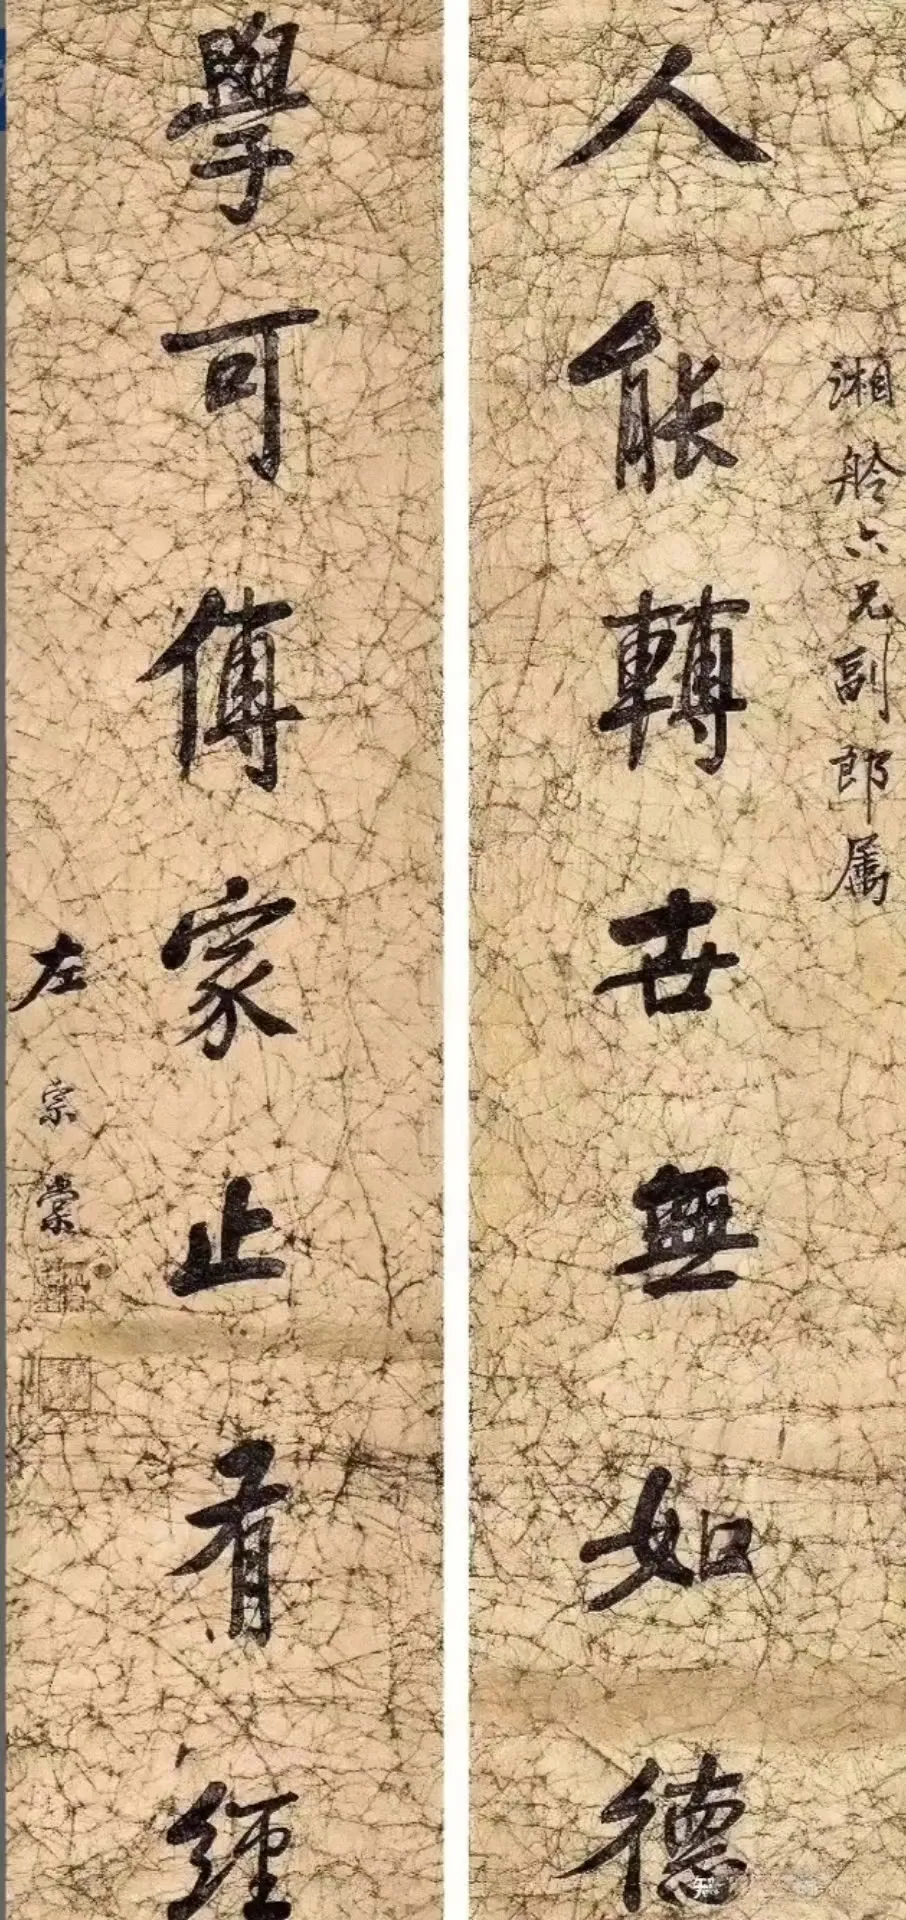 湘舲六兄副郎属
人能轉世無如德
學可傳家止有經
左宗棠